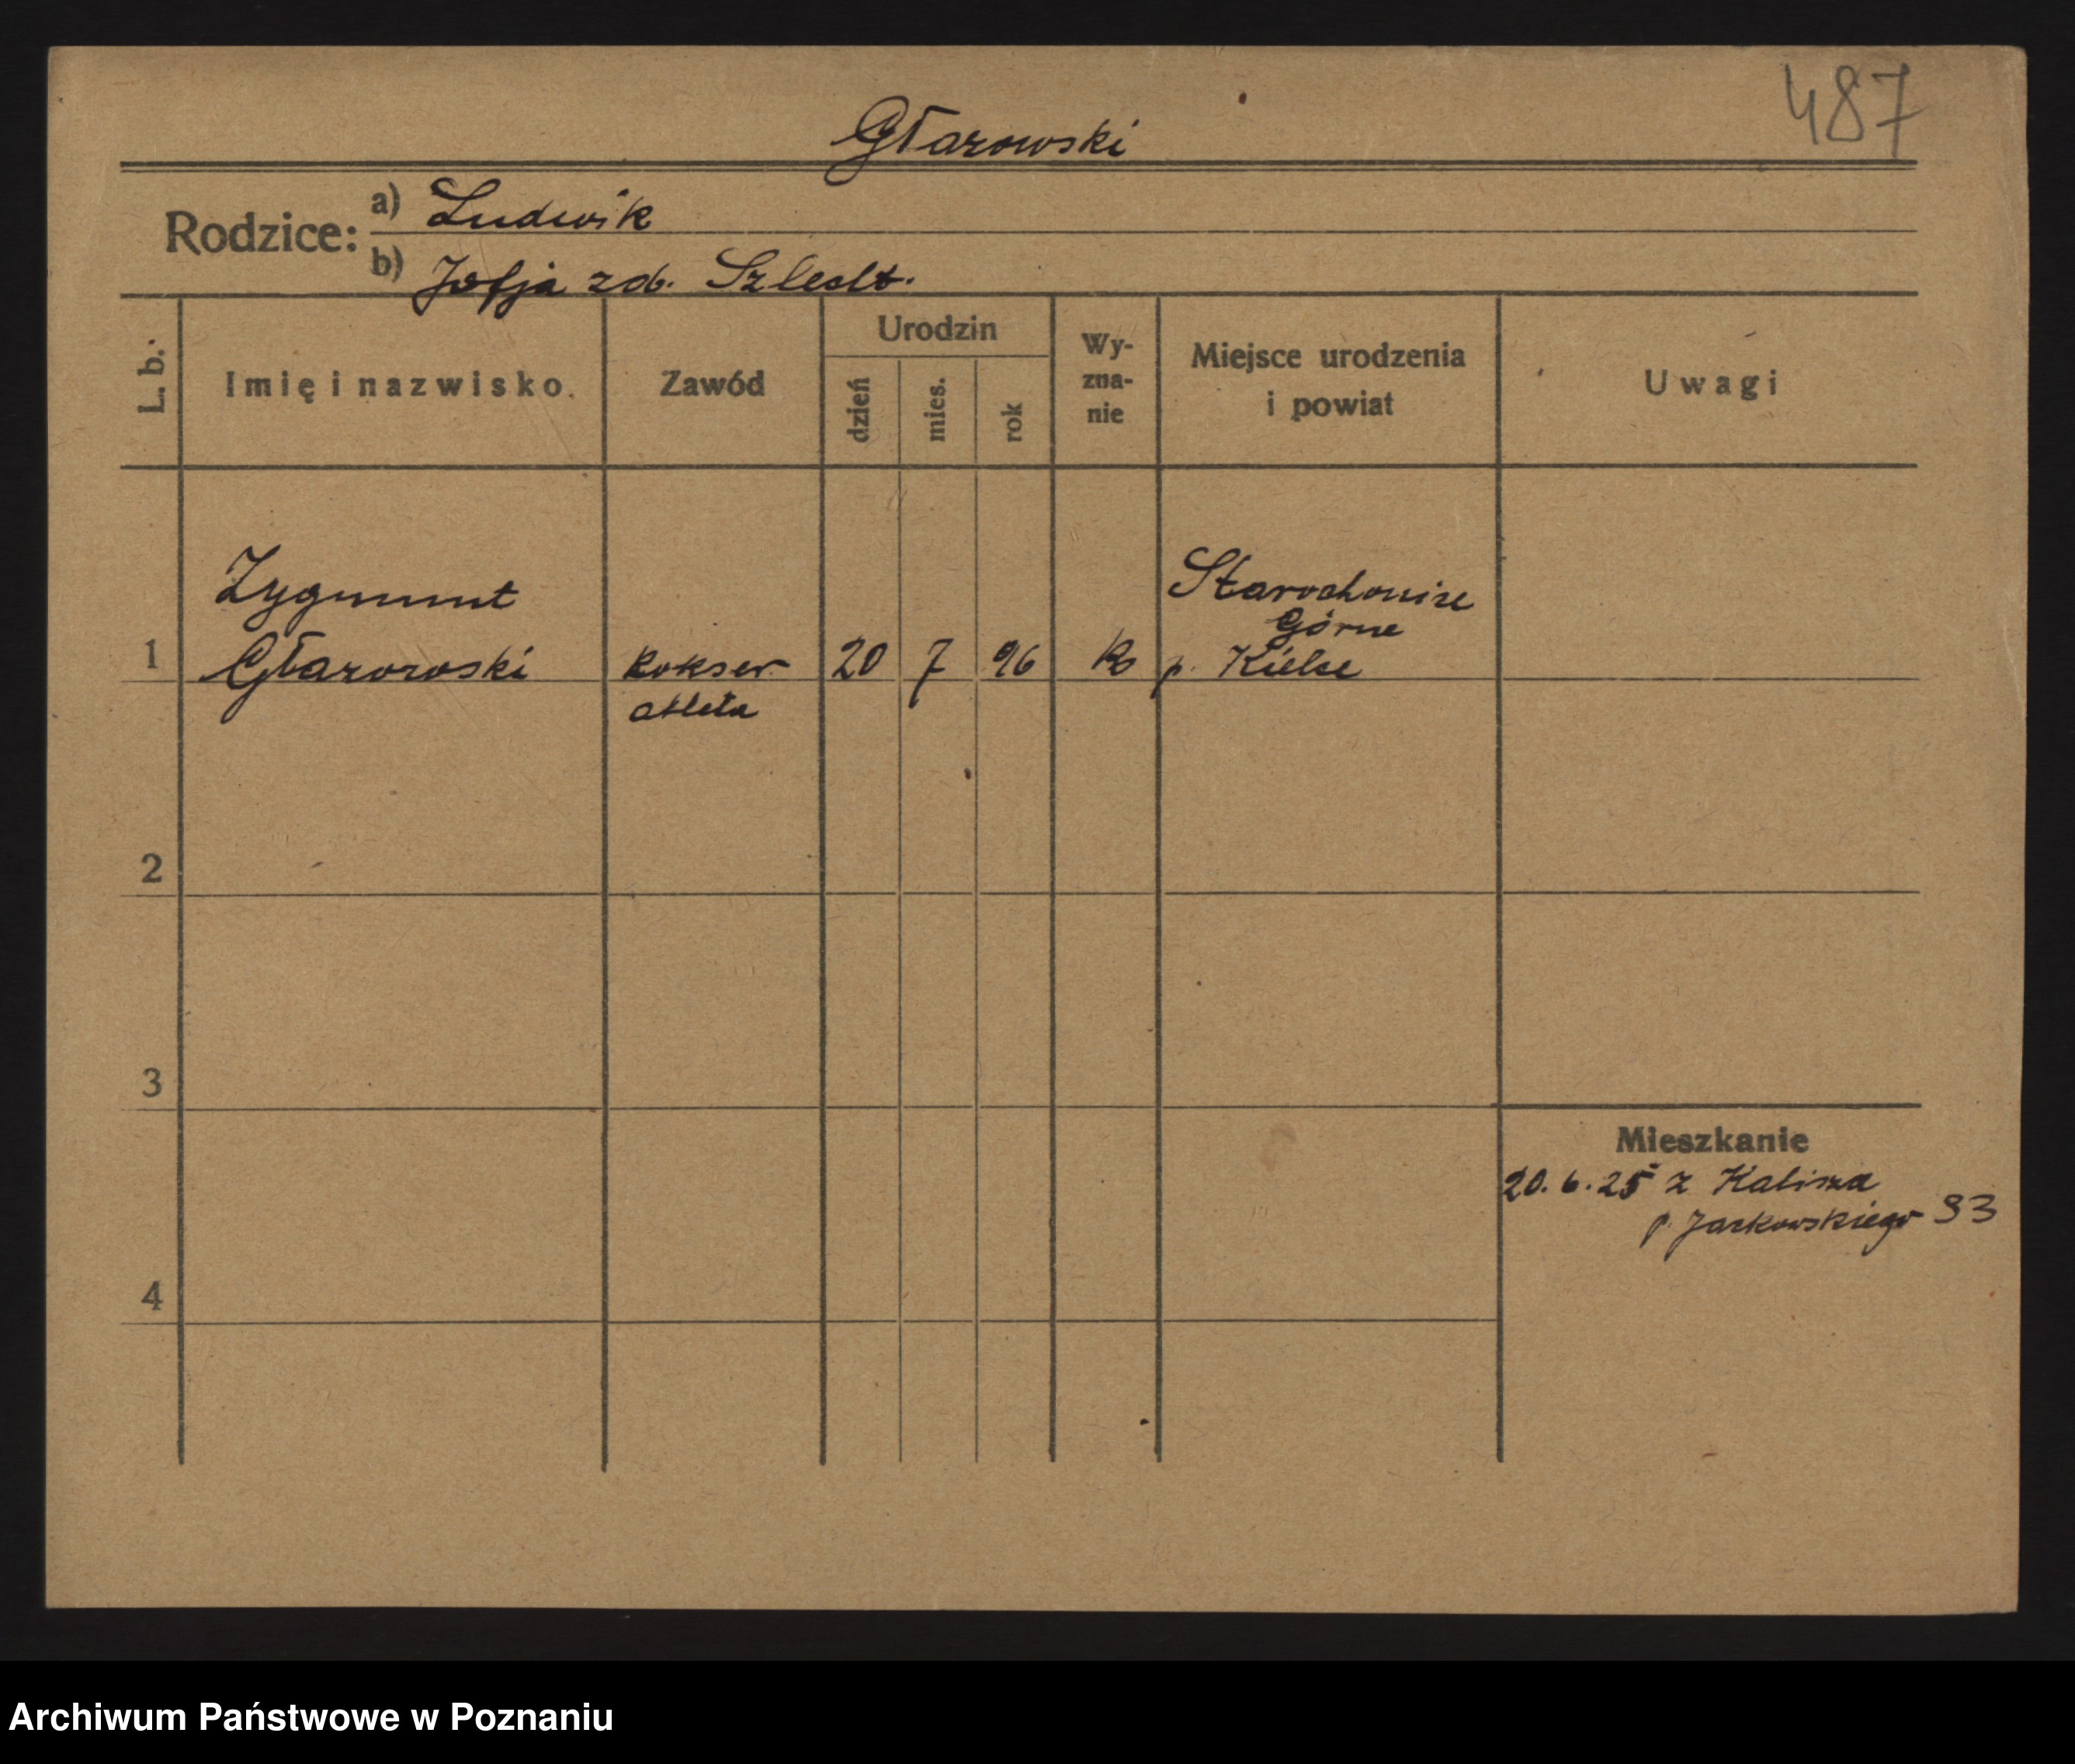 487
Głazowski
Rodzice: a) Ludwik
b) Zofja zd. Szlecht.
L. b. Imię i nazwisko. Zawód Urodzin dzień mies. rok Wy-zna-nie Miejsce urodzenia i powiat Uwagi
Zygmunt Starochonice
Górne
1 Głazowski Bokser 20 7 96 K p. Kielce
atleta
2
3
Mieszkanie
20. 6. 25 z Kalisza
p. Jackowskiego 33
4
Archiwum Państwowe w Poznaniu